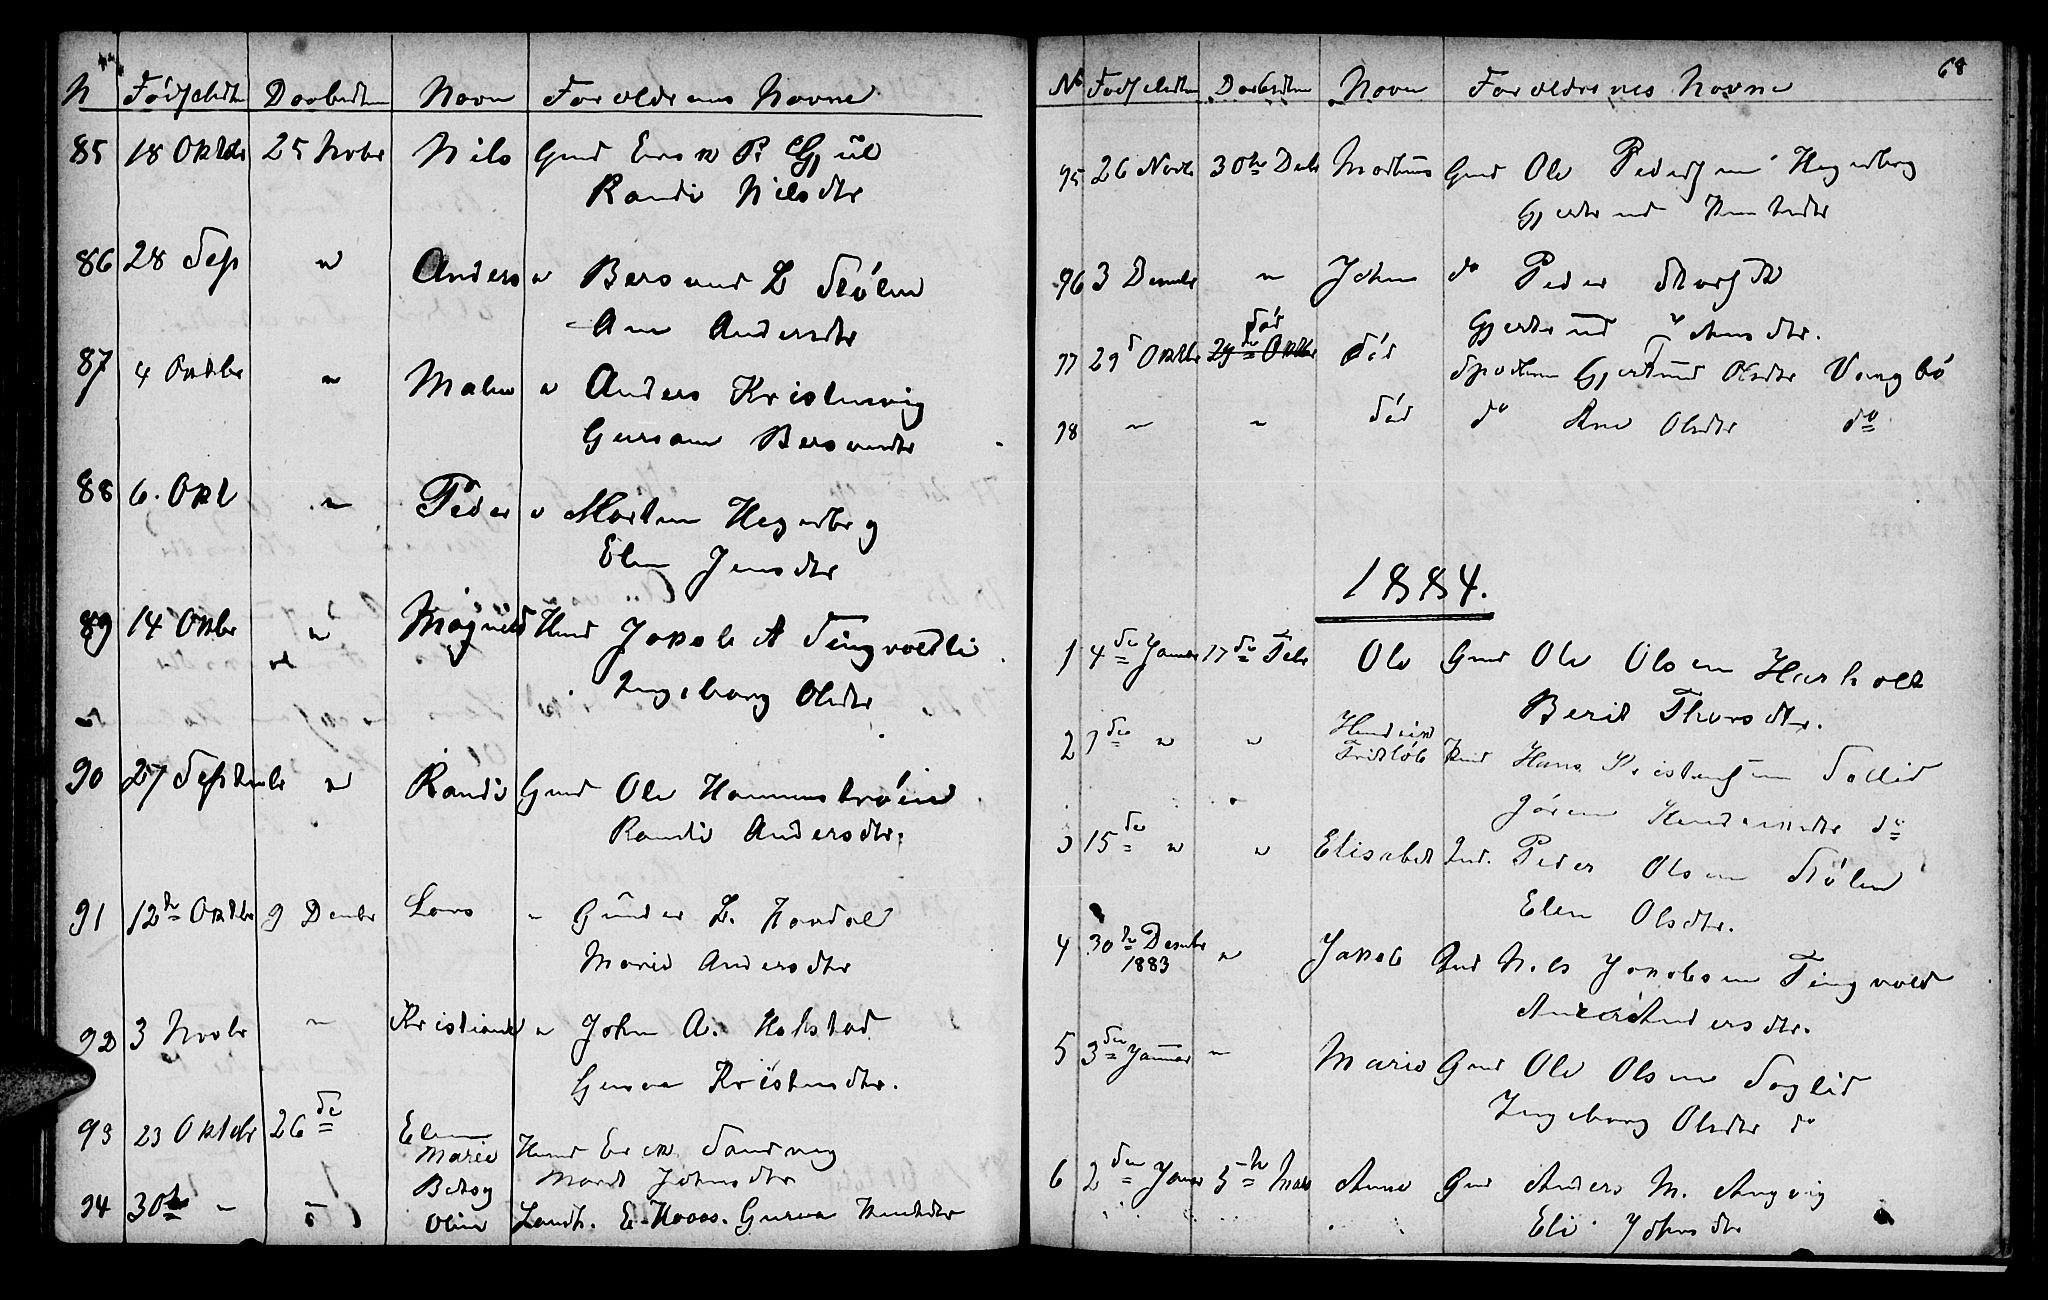 N Födselsdtm Daabsdtm Navn Forældrenes Navne
85 18 Oktbr 25 Novbr Nils Gmd Erik P. Gjül
Randi Nilsdtr
86 28 Sep " Anders " Bersvend L Stölen
Ane Andersdtr
87 4 Oktbr " Malen " Anders Kristensvig
Guruane Bersvendtr
88 6. Okt " Peder " Morten Hegerberg
Elen Jensdtr
89 14 Oktbr " Magnild Hmd Jakob A Tingvoldli
Ingeborg Olsdtr
90 27 Septembr " Randi Gmd Ole Hammerströen
Randi Andersdtr.
91 12te Oktbr 9 Decmbr Lars " Gunder L. Hovdal
Marie Andersdtr
92 3 Novbr " Kristiane " John A. Holstad
Gurua Kristensdtr.
93 23 Oktobr 26de Elen
Marie Hmd Erik Sandvig
Maret Johnsdtr
94 30te " " Betsy
Oline Landh. E. Haaes. Gurua Knutsdtr
68
No Födselsdtm Daabsdtm Navn Forældrenes Navne
95 26 Novb 30te Decb Mathias Gmd Ole Pedersen Hegerberg
Gjertrud Knutsdtr
96 3 Decmbr " John do Peder Storvik
Gjertrud Jensdtr.
97 29d Oktbr 29de Oktbr död död Spædtm Gjertrud Olsdtr Vangbö
98 " " död do Ane Olsdtr do
1884.
1 4de Januar 17de Feb Ole Gmd Ole Olsen Harholt
Berit Thorsdtr.
2 7de " " Hendrik
Fridtlöb Kmd Hans Kristensen Sollid
Jören Hendriksdtr do
3 15de " " Elisabet Ind. Peder Olsen Stölen
Elen Olsdtr.
4 30te Decmbr
1883 " Jakob Gmd Nils Jakobsen Tingvold
Andersdtr.
5 3de Januar " Marie Gmd Ole Olsen Soglid
Ingeborg Olsdtr do
6 2den Januar 5te Mars Anne Gmd Anders M. Angvig
Eli Johnsdtr